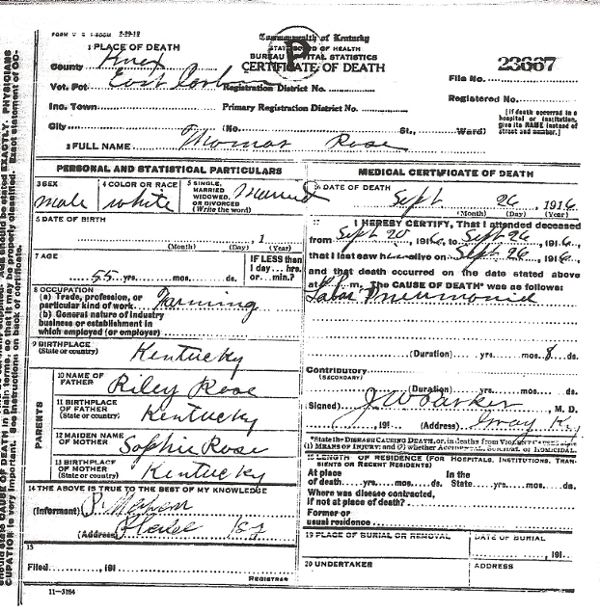 FORM V. S. 1-500M 2-29-12
Commonwealth of Kentucky
STATE BOARD OF HEALTH
BUREAU OF VITAL STATISTICS
CERTIFICATE OF DEATH
P
23667
1 PLACE OF DEATH
County Knox
Vot. Pct. East Corbin Registration District No.
File No.
Inc. Town Primary Registration District No.
Registered No.
City (No. St., Ward)
[If death occurred in a hospital or institution, give its NAME instead of street and number.]
2 FULL NAME Thomas Rose
PERSONAL AND STATISTICAL PARTICULARS
3 SEX male
4 COLOR OR RACE white
5 SINGLE, MARRIED WIDOWED, OR DIVORCED (Write the word) Married
6 DATE OF BIRTH
(Month) (Day) 1 (Year)
7 AGE
55 yrs. mos. ds.
IF LESS than 1 day... hrs. or... min.?
8 OCCUPATION
(a) Trade, profession, or particular kind of work Farming
(b) General nature of industry business or establishment in which employed (or employer)
9 BIRTHPLACE (State or country) Kentucky
PARENTS
10 NAME OF FATHER Riley Rose
11 BIRTHPLACE OF FATHER (State or country) Kentucky
12 MAIDEN NAME OF MOTHER Sophie Rose
13 BIRTHPLACE OF MOTHER (State or country) Kentucky
14 THE ABOVE IS TRUE TO THE BEST OF MY KNOWLEDGE
(Informant)
(Address)
15
Filed, 191
REGISTRAR
11-3184
MEDICAL CERTIFICATE OF DEATH
16 DATE OF DEATH
Sept 26, 1916
(Month) (Day) (Year)
17 I HEREBY CERTIFY, That I attended deceased
from Sept 20, 1916, to Sept 26, 1916,
that I last saw him alive on Sept 26, 1916,
and that death occurred on the date stated above
at m. The CAUSE OF DEATH* was as follows:
Labar Pneumonia
(Duration) yrs. mos. 8 ds.
Contributory (SECONDARY)
(Duration) yrs. mos. ds.
Signed J W Parker, M. D.
, 191 (Address) Gray Ky
*State the DISEASE CAUSING DEATH, or, in deaths from VIOLENT CAUSES state
(1) MEANS OF INJURY; and (2) whether ACCIDENTAL, SUICIDAL or HOMICIDAL.
18 LENGTH OF RESIDENCE (FOR HOSPITALS, INSTITUTIONS, TRANSIENTS OR RECENT RESIDENTS)
At place of death yrs. mos. ds. In the State yrs. mos. ds.
Where was disease contracted, if not at place of death?
Former or usual residence
19 PLACE OF BURIAL OR REMOVAL
DATE OF BURIAL
, 191
20 UNDERTAKER
ADDRESS